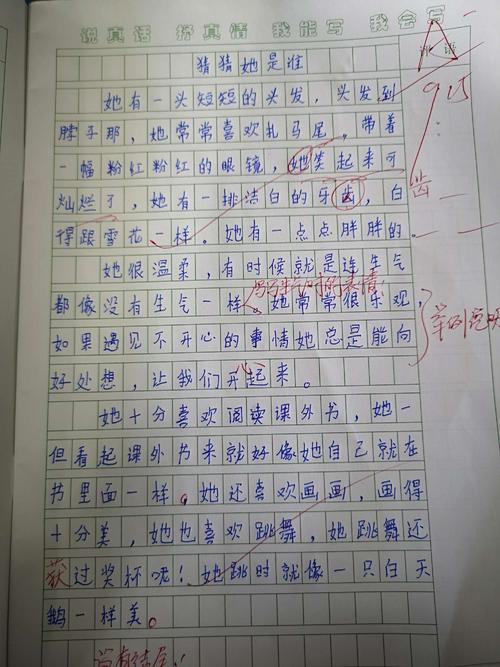 说真话 抒真情 我能写 我会写
猜猜她是谁
她有一头短短的头发,头发到
脖子那,她常常喜欢扎马尾,带着
一幅粉红粉红的眼镜,她笑起来可
灿烂了,她有一排洁白的牙齿,白
得跟雪花一样。她有一点点胖胖的。
齿
她很温柔,有时候就是连生气
都像没有生气一样。她常常很乐观,
如果遇见不开心的事情她总是能向
好处想,让我们开心起来。
她十分喜欢阅读课外书,她一
但看起课外书来就好像她自己就在
书里面一样。她还喜欢画画,画得
十分美,她也喜欢跳舞,她跳舞还
获过奖杯呢!她跳时就像一只白天
鹅一样美。
没有结尾!